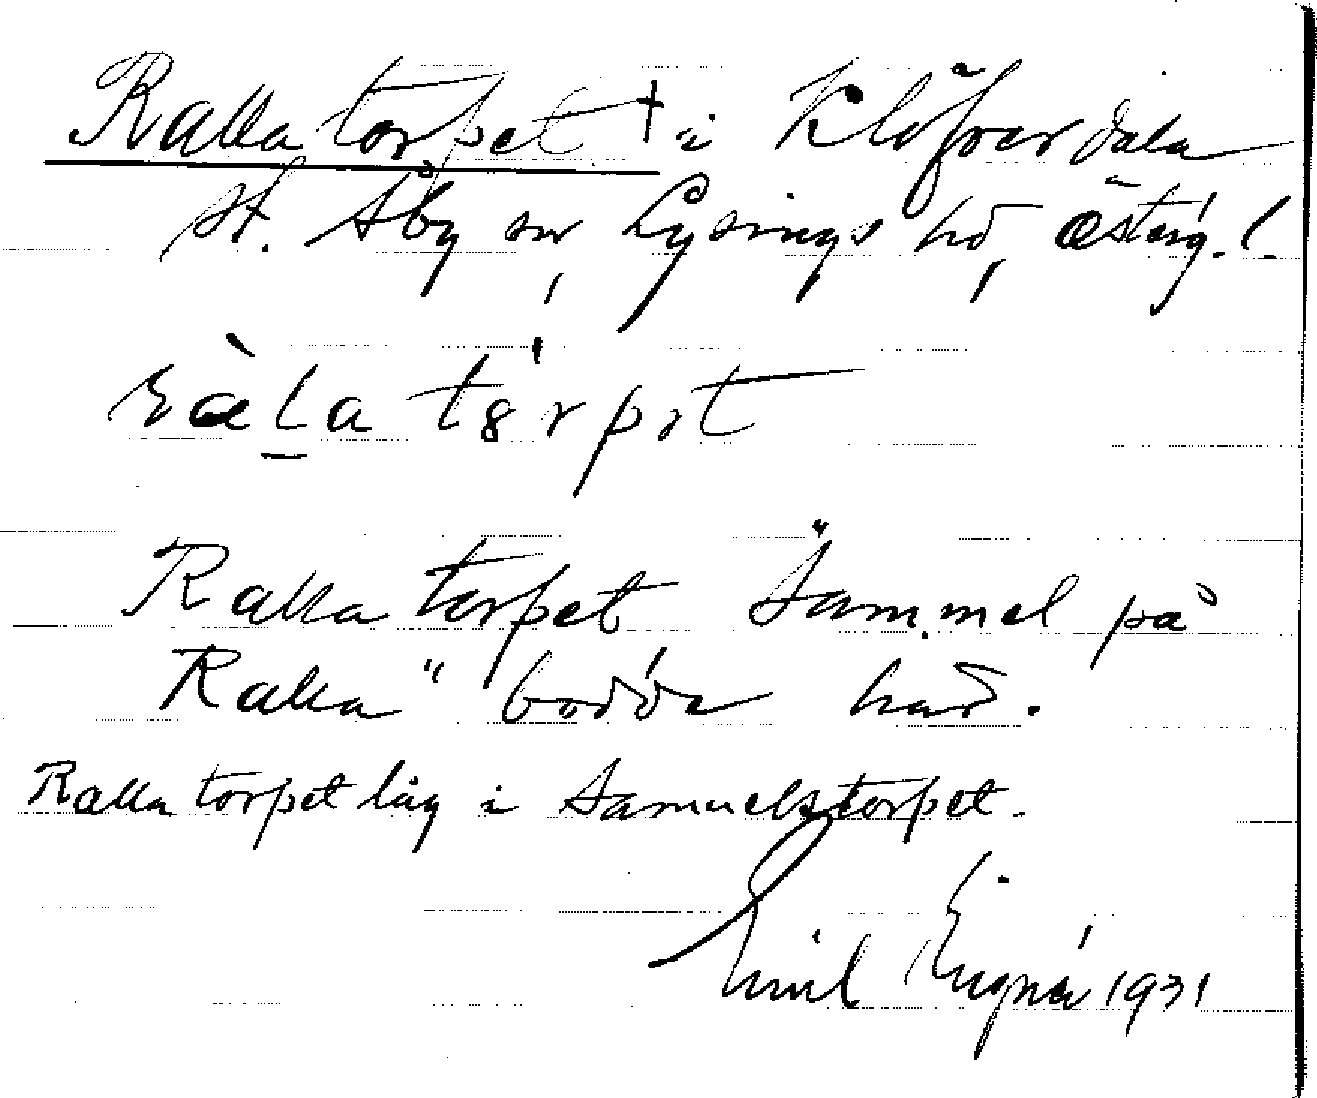 Rallatorpet † i Klöfverdala
St. Åby sn, Lysings hd, Österg. l.
ràlatórpət
Rallatorpet Sammel på
Ralla" bodde här.
Rallatorpet låg i Samuelstorpet.
Emil 1931